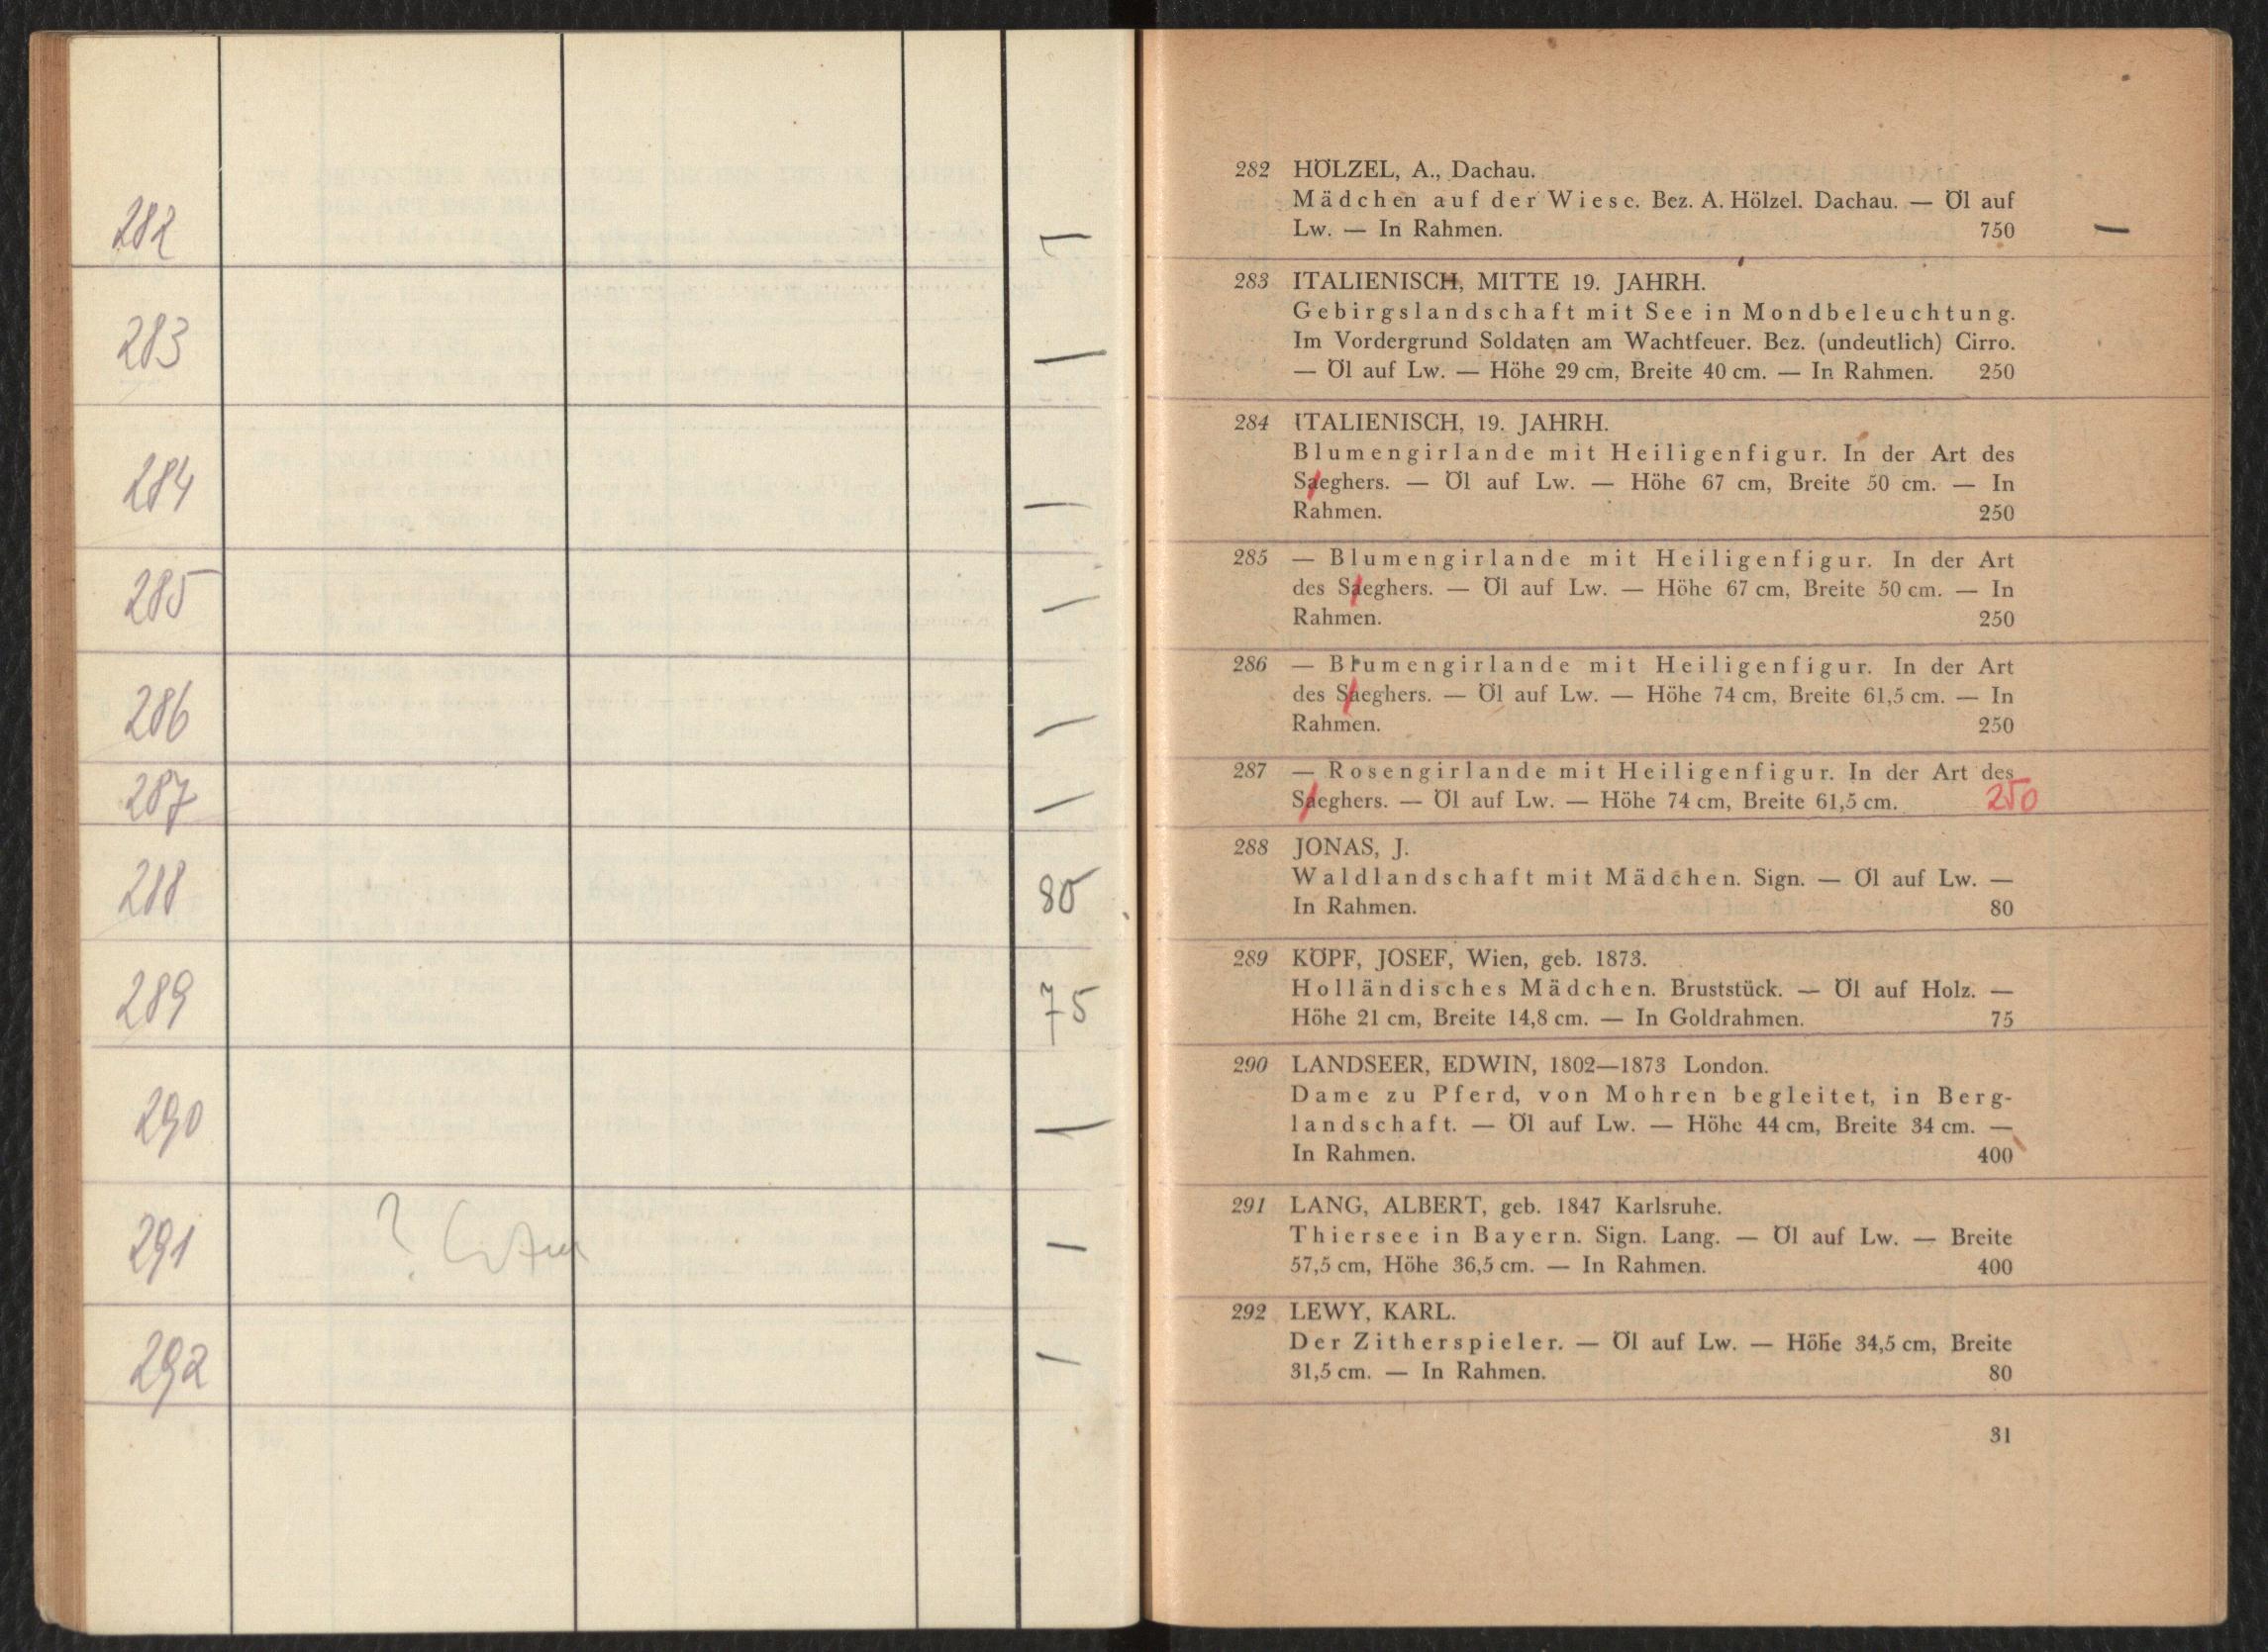 282
—
283
—
284
—
285
—
286
—
287
—
288
80
289
75
290
—
291
?
—
292
—
282 HÖLZEL, A., Dachau.
Mädchen auf der Wiese. Bez. A. Hölzel. Dachau. — Öl auf
Lw. — In Rahmen. 750 —
283 ITALIENISCH, MITTE 19. JAHRH.
Gebirgslandschaft mit See in Mondbeleuchtung.
Im Vordergrund Soldaten am Wachtfeuer. Bez. (undeutlich) Cirro.
— Öl auf Lw. — Höhe 29 cm, Breite 40 cm. — In Rahmen. 250
284 ITALIENISCH, 19. JAHRH.
Blumengirlande mit Heiligenfigur. In der Art des
Saeghers. — Öl auf Lw. — Höhe 67 cm, Breite 50 cm. — In
Rahmen. 250
285 — Blumengirlande mit Heiligenfigur. In der Art
des Saeghers. — Öl auf Lw. — Höhe 67 cm, Breite 50 cm. — In
Rahmen. 250
286 — Blumengirlande mit Heiligenfigur. In der Art
des Saeghers. — Öl auf Lw. — Höhe 74 cm, Breite 61,5 cm. — In
Rahmen. 250
287 — Rosengirlande mit Heiligenfigur. In der Art des
Saeghers. — Öl auf Lw. — Höhe 74 cm, Breite 61,5 cm. 250
288 JONAS, J.
Waldlandschaft mit Mädchen. Sign. — Öl auf Lw. —
In Rahmen. 80
289 KÖPF, JOSEF, Wien, geb. 1873.
Holländisches Mädchen. Bruststück. — Öl auf Holz. —
Höhe 21 cm, Breite 14,8 cm. — In Goldrahmen. 75
290 LANDSEER, EDWIN, 1802—1873 London.
Dame zu Pferd, von Mohren begleitet, in Berg-
landschaft. — Öl auf Lw. — Höhe 44 cm, Breite 34 cm. —
In Rahmen. 400
291 LANG, ALBERT, geb. 1847 Karlsruhe.
Thiersee in Bayern. Sign. Lang. — Öl auf Lw. — Breite
57,5 cm, Höhe 36,5 cm. — In Rahmen. 400
292 LEWY, KARL.
Der Zitherspieler. — Öl auf Lw. — Höhe 34,5 cm, Breite
31,5 cm. — In Rahmen. 80
31